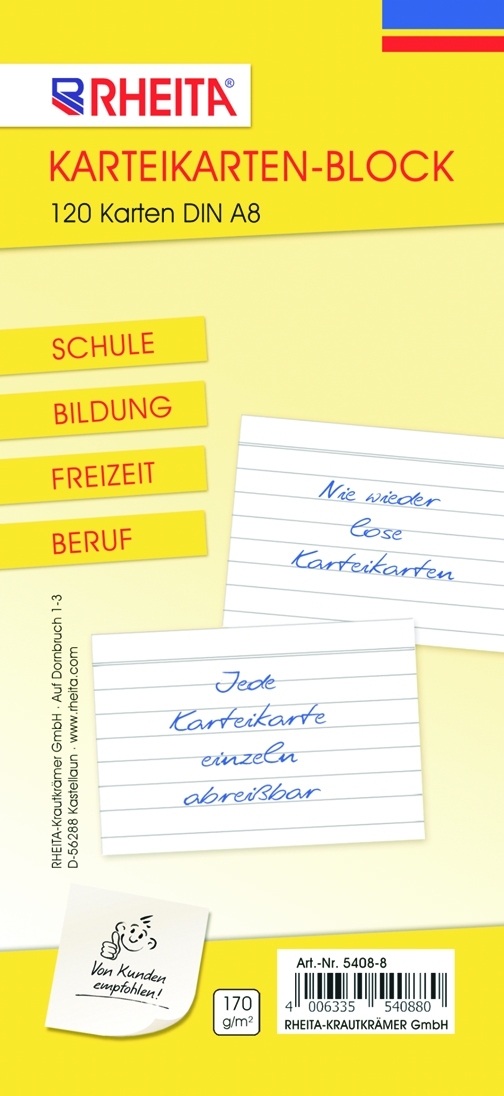 RHEITA®
KARTEIKARTEN-BLOCK
120 Karten DIN A8
SCHULE
BILDUNG
FREIZEIT
BERUF
Nie wieder
lose
Karteikarten
Jede
Karteikarte
einzeln
abreißbar
RHEITA-Krautkrämer GmbH · Auf Dornbruch 1-3
D-56288 Kastellaun · www.rheita.com
Von Kunden
empfohlen!
170
g/m²
Art.-Nr. 5408-8
4 006335 540880
RHEITA-KRAUTKRÄMER GmbH